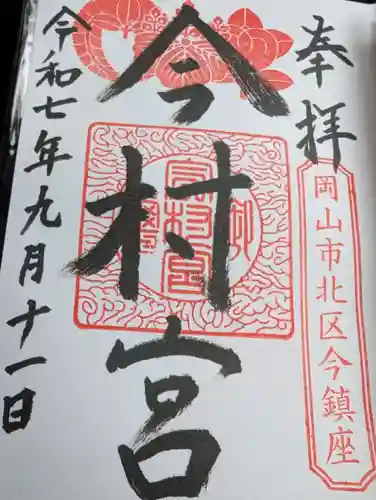 奉拝
岡山市北区今鎮座
今村宮
令和七年九月十一日